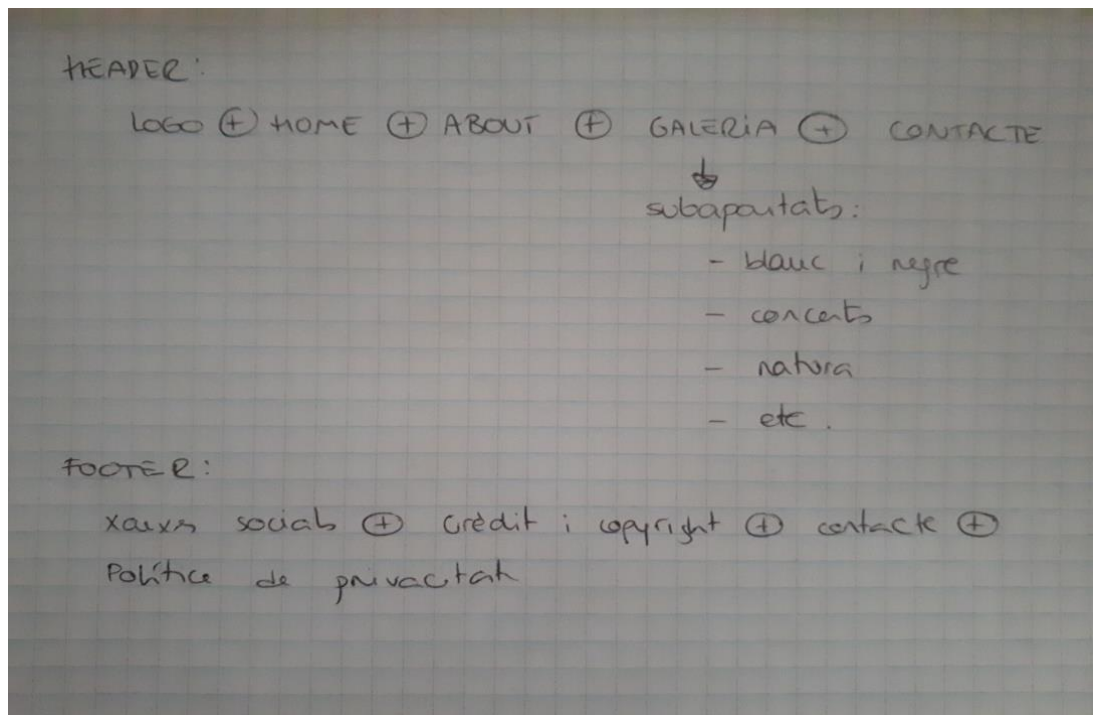 HEADER:
LOGO ⊕ HOME ⊕ ABOUT ⊕ GALERIA ⊕ CONTACTE
↓
subapartats:
- blanc i negre
- concerts
- natura
- etc.
FOOTER:
xarxes socials ⊕ crèdit i copyright ⊕ contacte ⊕
Política de privacitat